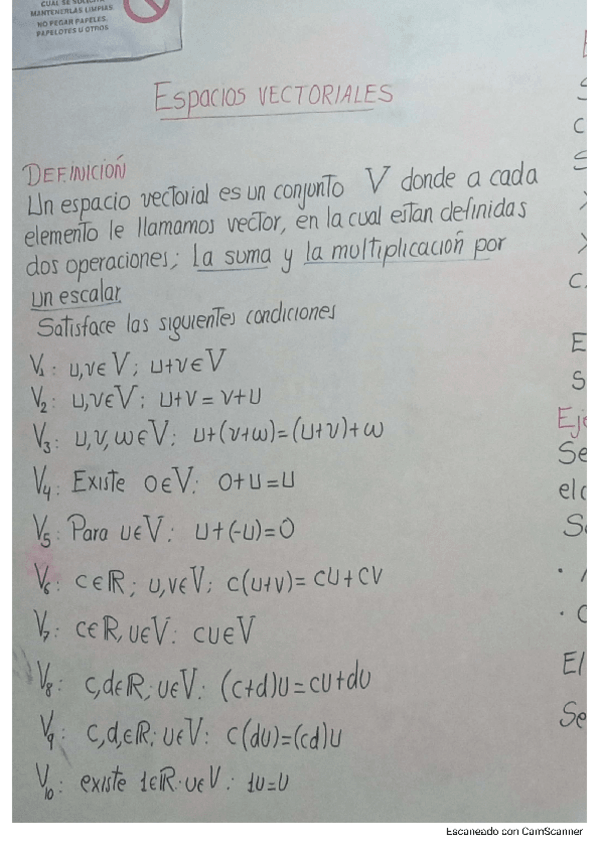 CUAL SE SOLICITA
MANTENERLAS LIMPIAS
NO PEGAR PAPELES,
PAPELOTES U OTROS
ESPACIOS VECTORIALES
DEFINICIÓN
Un espacio vectorial es un conjunto V donde a cada
elemento le llamamos vector, en la cual estan definidas
dos operaciones; la suma y la multiplicación por
un escalar
Satisface las siguientes condiciones
V₁: u,v∈V; u+v∈V
V₂: u,v∈V; u+v=v+u
V₃: u,v,w∈V; u+(v+w)=(u+v)+w
V₄: Existe 0∈V: 0+u=u
V₅: Para u∈V: u+(-u)=0
V₆: c∈ℝ; u,v∈V; c(u+v)=cu+cv
V₇: c∈ℝ, u∈V: cu∈V
V₈: c,d∈ℝ; u∈V: (c+d)u=cu+du
V₉: c,d,∈ℝ; u∈V: c(du)=(cd)u
V₁₀: existe 1∈ℝ. u∈V: 1u=u
Escaneado con CamScanner